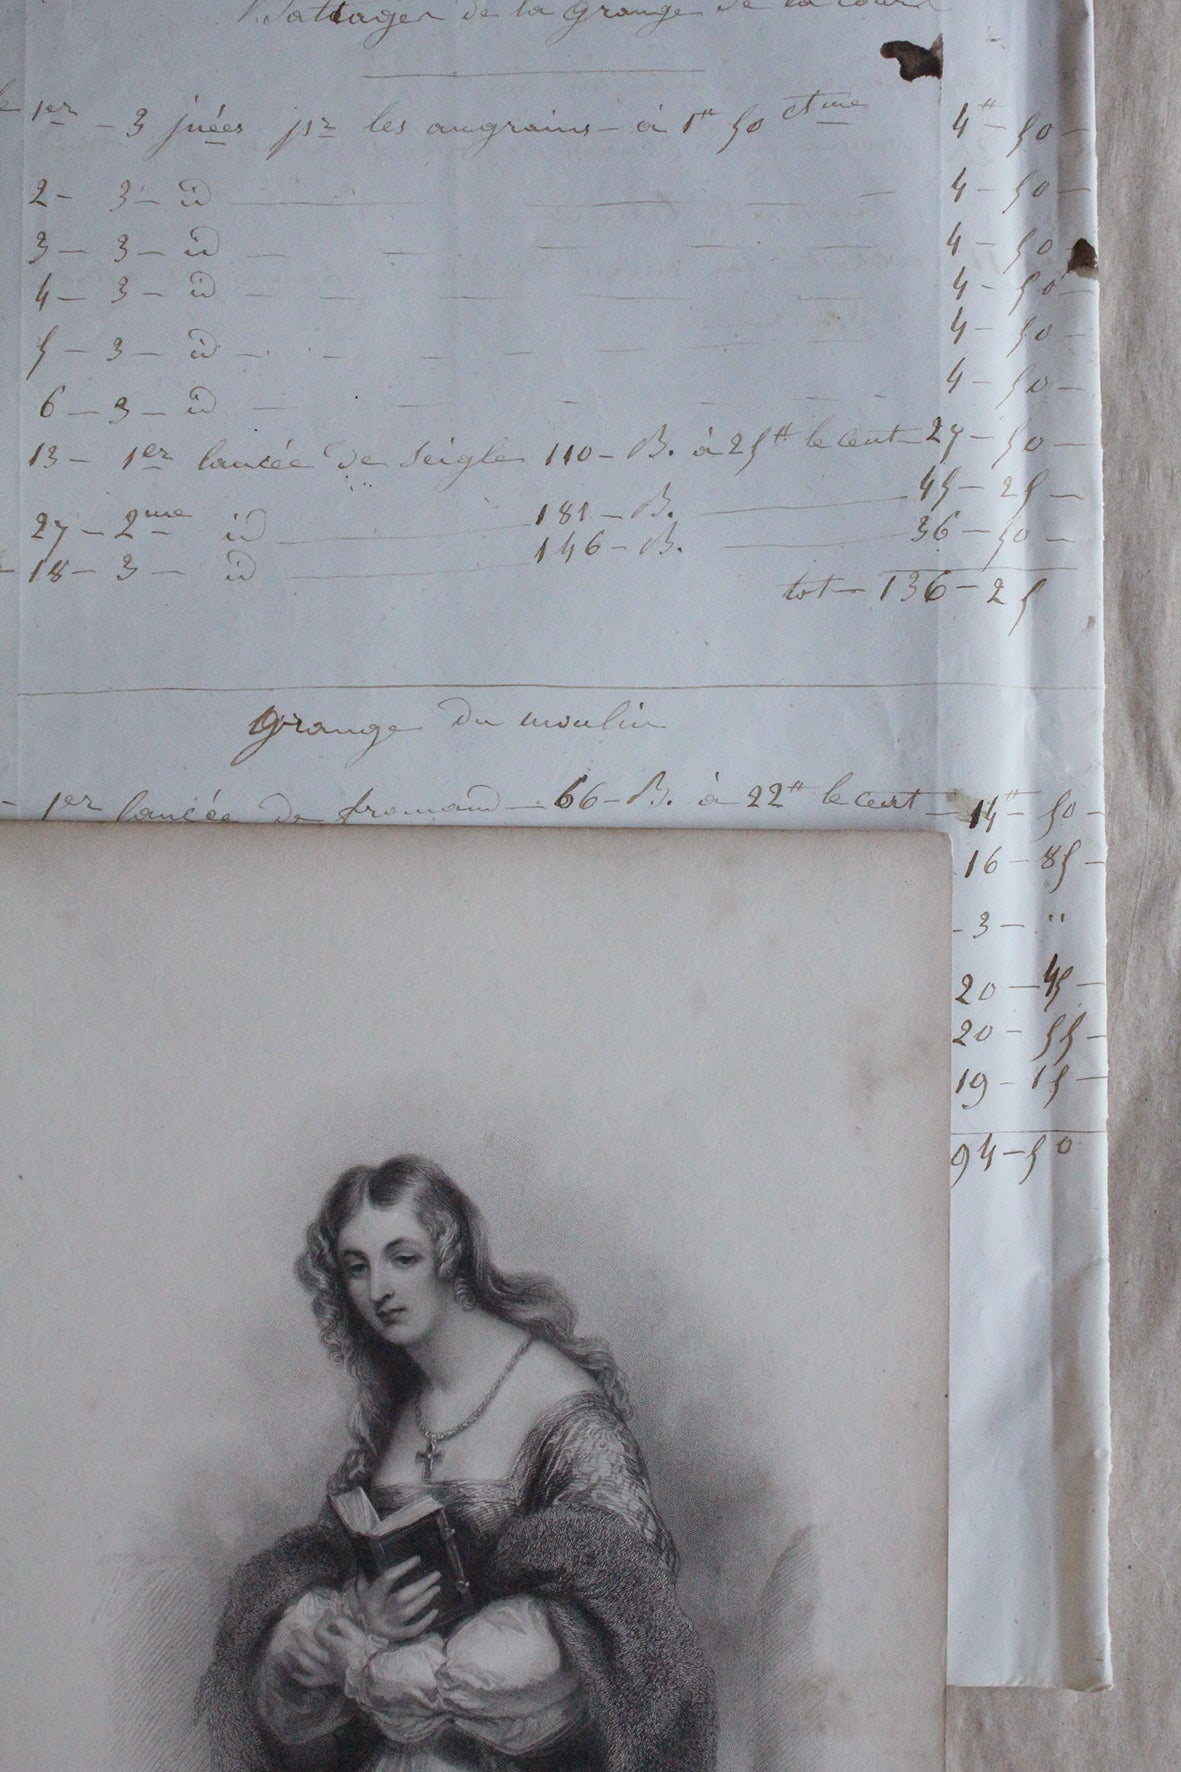 Battages de la grange de la cour
le 1er - 3 jnées pr les augrains - à 1# 50 ctme 4# - 50 -
2 - 3 - id - 4 - 50 -
3 - 3 - id - 4 - 50 -
4 - 3 - id - 4 - 50 -
5 - 3 - id - 4 - 50 -
6 - 3 - id - 4 - 50 -
13 - 1er lancée de seigle 110 - B. à 25# le cent - 27 - 50 -
27 - 2me id 181 - B. 45 - 25 -
18 - 3 - id 146 - B. 36 - 50 -
tot - 136 - 25
grange du moulin
1er lancée de fromand - 66 - B. à 22# le cent - 14# - 50 -
16 - 85 -
- 3 - "
20 - 45 -
20 - 55 -
19 - 15 -
94 - 50